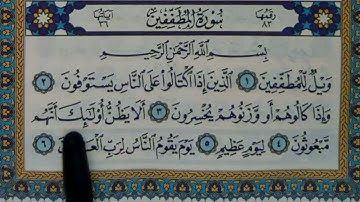 رقمها ٨٣
سورة المطففين
آياتها ٣٦
بِسْمِ ٱللَّهِ ٱلرَّحْمَٰنِ ٱلرَّحِيمِ
وَيْلٌ لِّلْمُطَفِّفِينَ ١ ٱلَّذِينَ إِذَا ٱكْتَالُوا۟ عَلَى ٱلنَّاسِ يَسْتَوْفُونَ ٢
وَإِذَا كَالُوهُمْ أَو وَّزَنُوهُمْ يُخْسِرُونَ ٣ أَلَا يَظُنُّ أُو۟لَٰٓئِكَ أَنَّهُم
مَّبْعُوثُونَ ٤ لِيَوْمٍ عَظِيمٍ ٥ يَوْمَ يَقُومُ ٱلنَّاسُ لِرَبِّ ٦